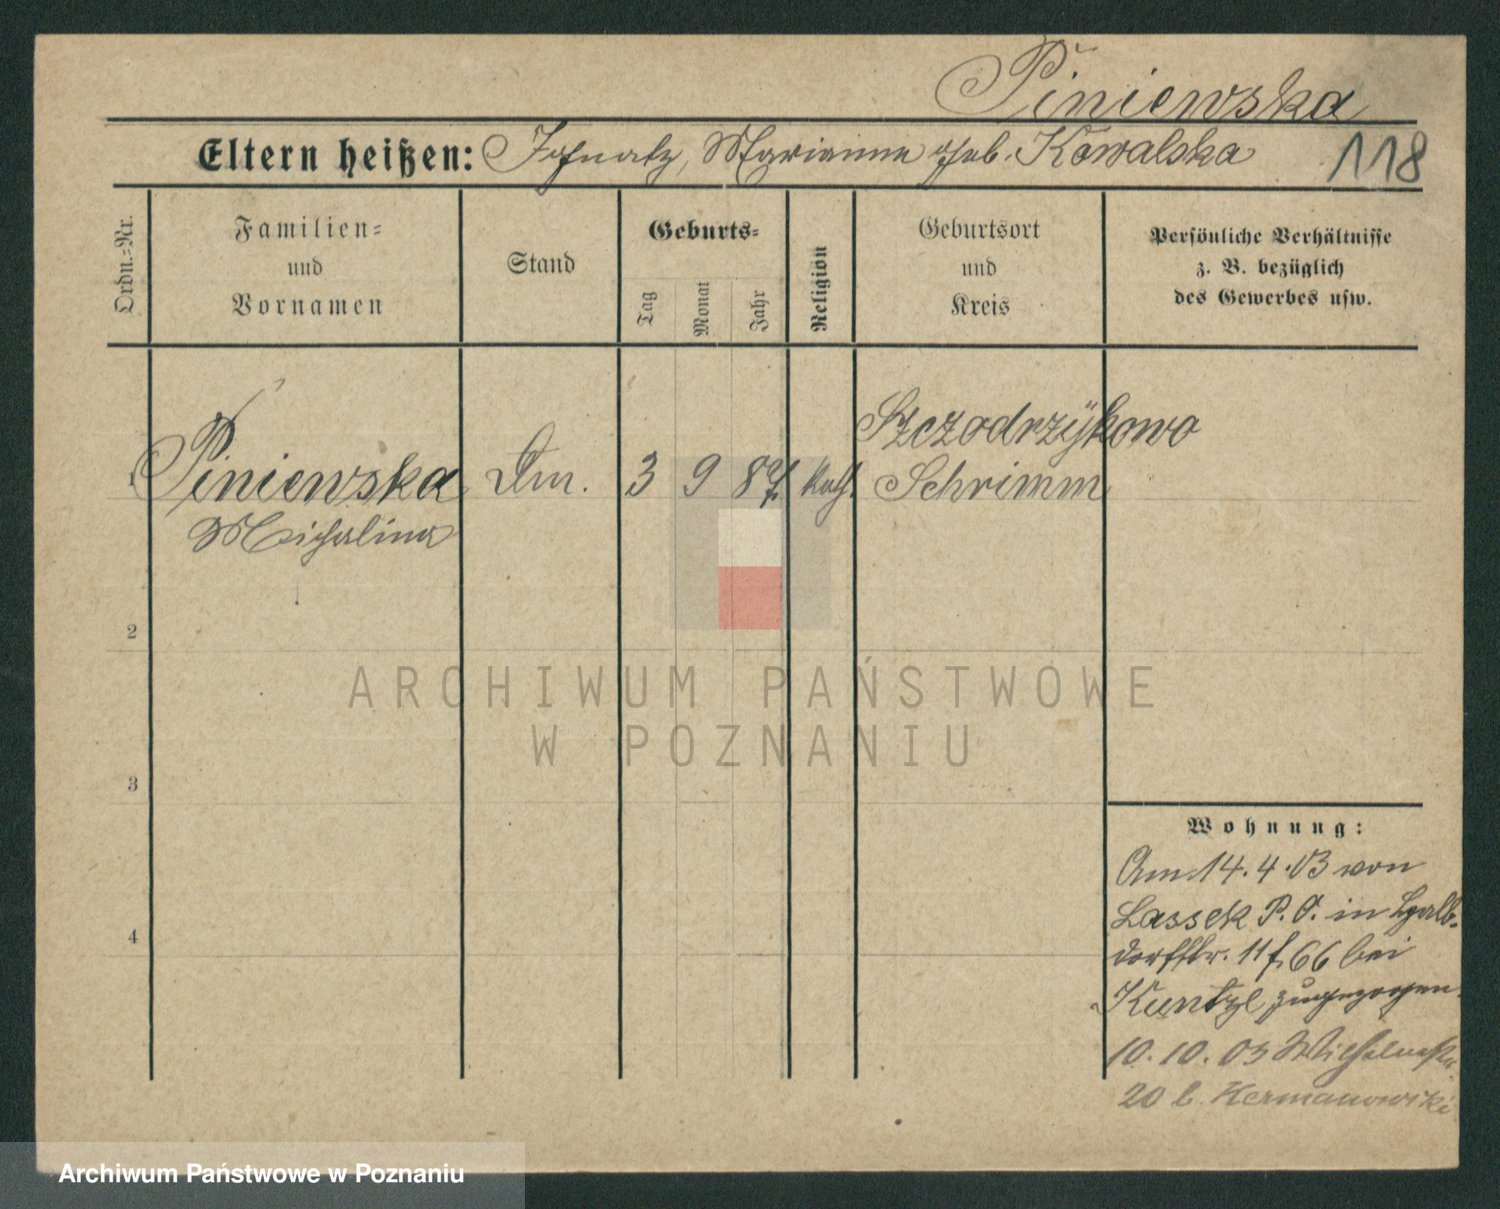 Piniewska
Eltern heißen: Ignatz, Marianne geb. Kowalska
118
Ordn.-Nr.
Familien-
und
Vornamen
Stand
Geburts-
Tag
Monat
Jahr
Religion
Geburtsort
und
Kreis
Persönliche Verhältnisse
z. B. bezüglich
des Gewerbes usw.
1
Piniewska
Michalina
3
9
87
kath.
Szczodrzykowo
Schrimm
2
3
4
Wohnung:
Am 14.4.03 von
Lassek P. O. in
11 f. 66 bei
Kuntzl zugezogen.
10.10.03 Wilhelmstr.
20 b. Hermanowski
ARCHIWUM PAŃSTWOWE
W POZNANIU
Archiwum Państwowe w Poznaniu